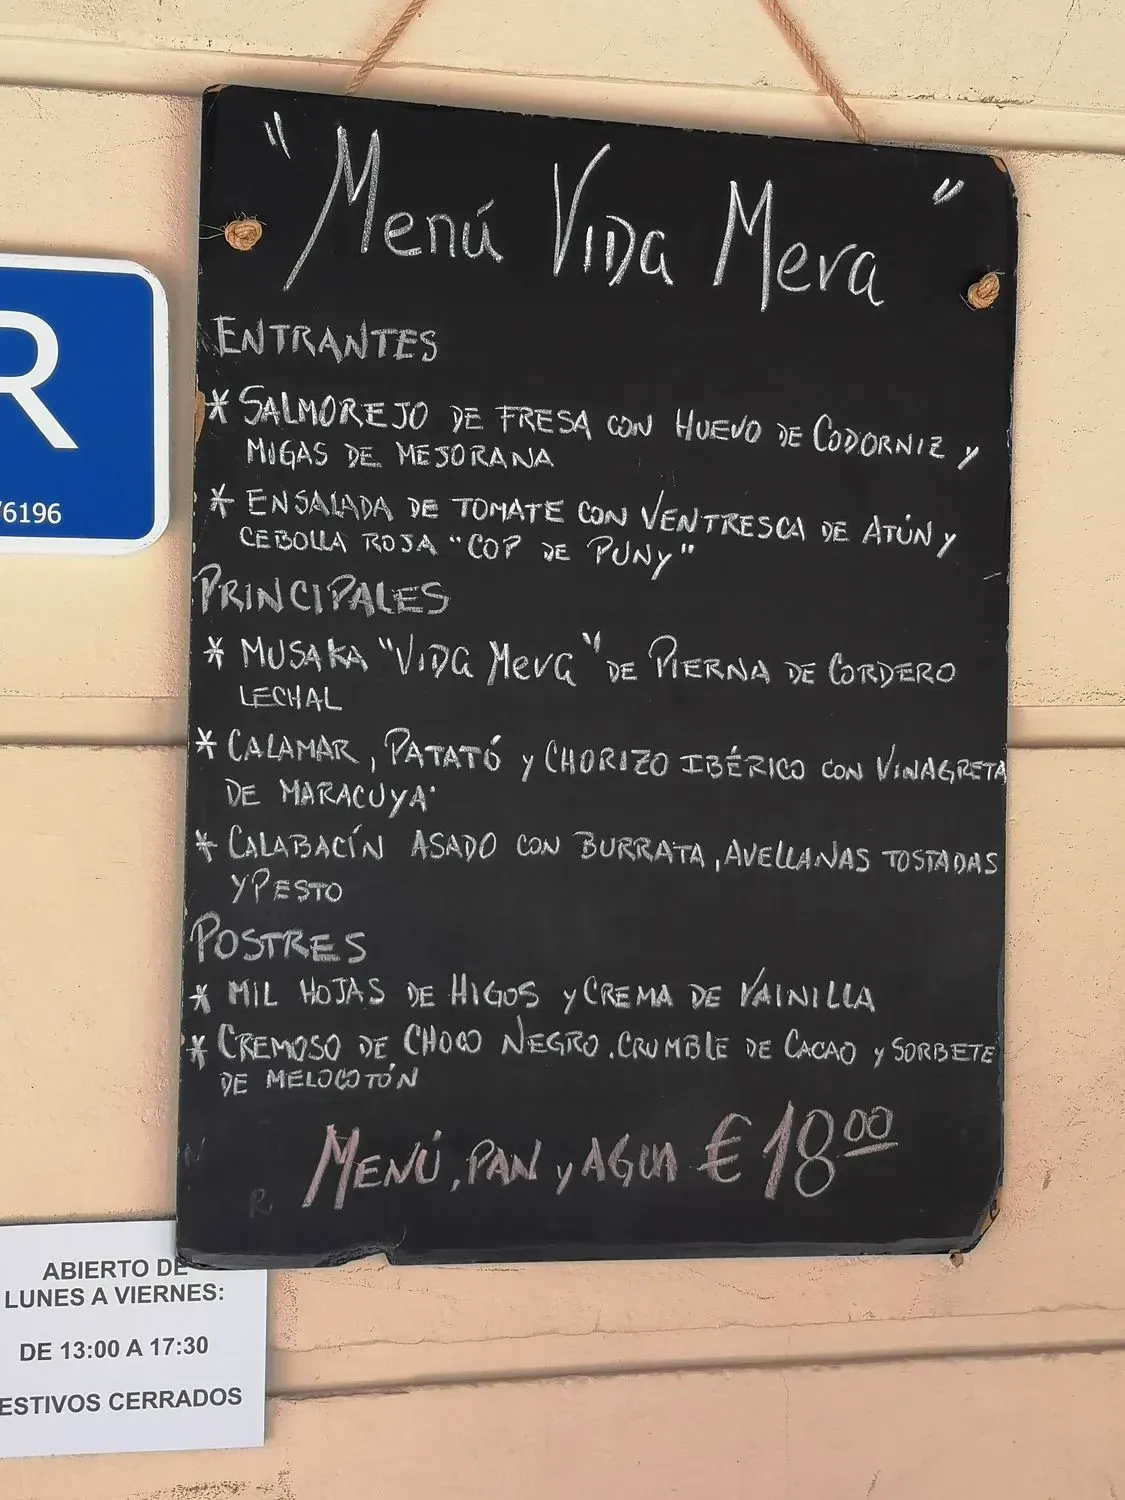 "Menú Vida Meva"
ENTRANTES
* SALMOREJO DE FRESA CON HUEVO DE CODORNIZ Y
MIGAS DE MEJORANA
* ENSALADA DE TOMATE CON VENTRESCA DE ATÚN Y
CEBOLLA ROJA "COP DE PUNY"
PRINCIPALES
* MUSAKA "VIDA MEVA" DE PIERNA DE CORDERO
LECHAL
* CALAMAR, PATATÓ Y CHORIZO IBÉRICO CON VINAGRETA
DE MARACUYA
* CALABACÍN ASADO CON BURRATA, AVELLANAS TOSTADAS
Y PESTO
POSTRES
* MIL HOJAS DE HIGOS Y CREMA DE VAINILLA
* CREMOSO DE CHOCO NEGRO. CRUMBLE DE CACAO Y SORBETE
DE MELOCOTÓN
MENÚ, PAN Y AGUA € 18.00
R
6196
ABIERTO DE
LUNES A VIERNES:
DE 13:00 A 17:30
ESTIVOS CERRADOS